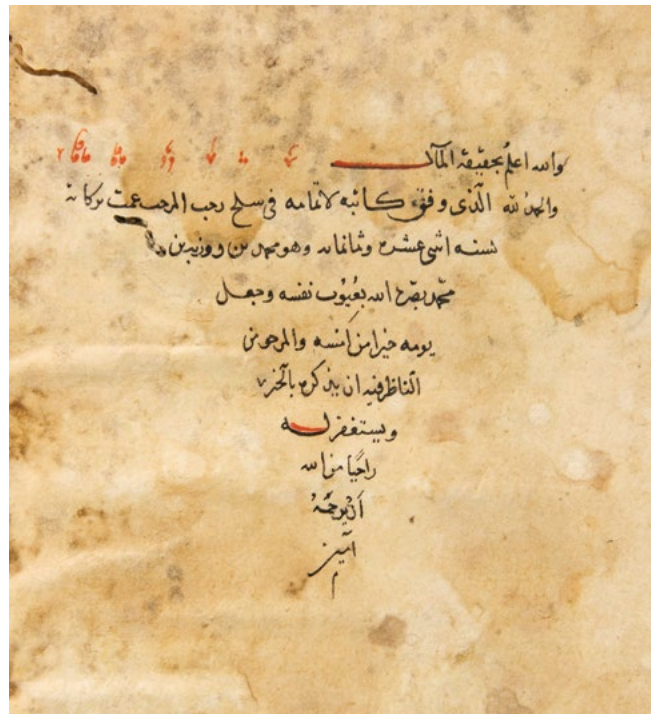 والله اعلم بحقيقة المآل
والحمد لله الذى وفق كاتبه لاتمامه فى سلخ رجب المرجب عمت بركاته
لسنه اثنى عشره وثمانمايه وهو محمد بن
محمد بصره الله بعيوب نفسه وجعل
يومه خيرا من امسه والمرجو من
الناظر فيه ان يذكره بالخير
ويستغفر له
راجيا من الله
ان يرحمه
آمين